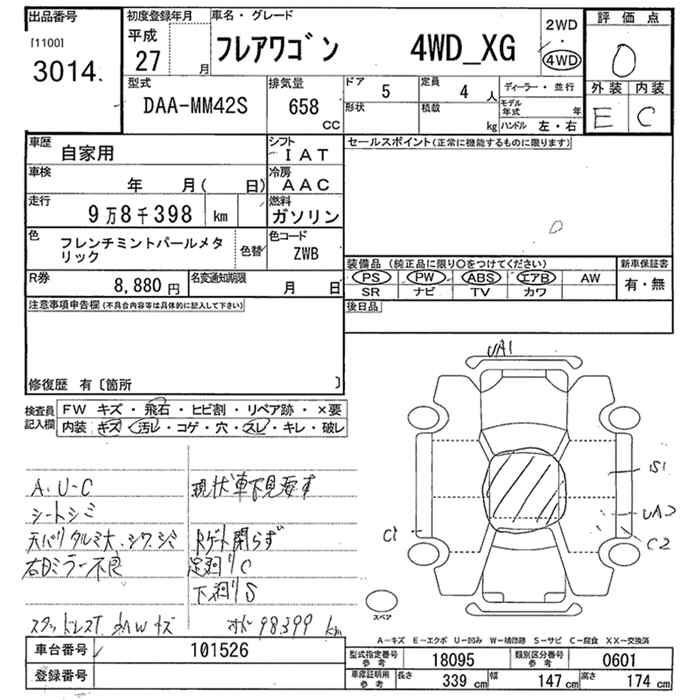 出品番号
[1100]
3014
初度登録年月
平成
27
月
車名・グレード
フレアワゴン 4WD_XG
2WD
・
4WD
評価点
0
外装 内装
E C
型式
DAA-MM42S
排気量
658
CC
ドア
5
定員
4 人
形状
積載
kg
ディーラー・並行
モデル
年式
年
ハンドル 左・右
車歴
自家用
シフト
IAT
車検
年 月( 日)
冷房
AAC
走行
9万8千398 km
燃料
ガソリン
色
フレンチミントパールメタ
リック
色替
色コード
ZWB
R券
8,880 円
名変通知期限
月 日
セールスポイント(正常に機能するものに限ります)
装備品 (純正品に限り○をつけてください)
PS PW ABS エアB AW
SR ナビ TV カワ
新車保証書
有・無
後日品
注意事項申告欄(不具合内容等は具体的に記入して下さい)
修復歴 有〔箇所 〕
検査員
記入欄
FW キズ・飛石・ヒビ割・リペア跡・×要
内装 キズ・汚レ・コゲ・穴・スレ・キレ・破レ
A・U・C
シートシミ
天バリタルミ大・シワ・シミ
右Dミラー不良
現状車下見要す
Rゲート閉らず
足廻りC
下廻りS
スタッドレスT
98399 km
UA1
S1
UA2
C2
C1
スペア
A－キズ E－エクボ U－凹み W－補修跡 S－サビ C－腐食 XX－交換済
車台番号
101526
登録番号
型式指定番号
参考
18095
類別区分番号
参考
0601
車庫証明用
参考
長さ
339 cm
幅
147 cm
高さ
174 cm